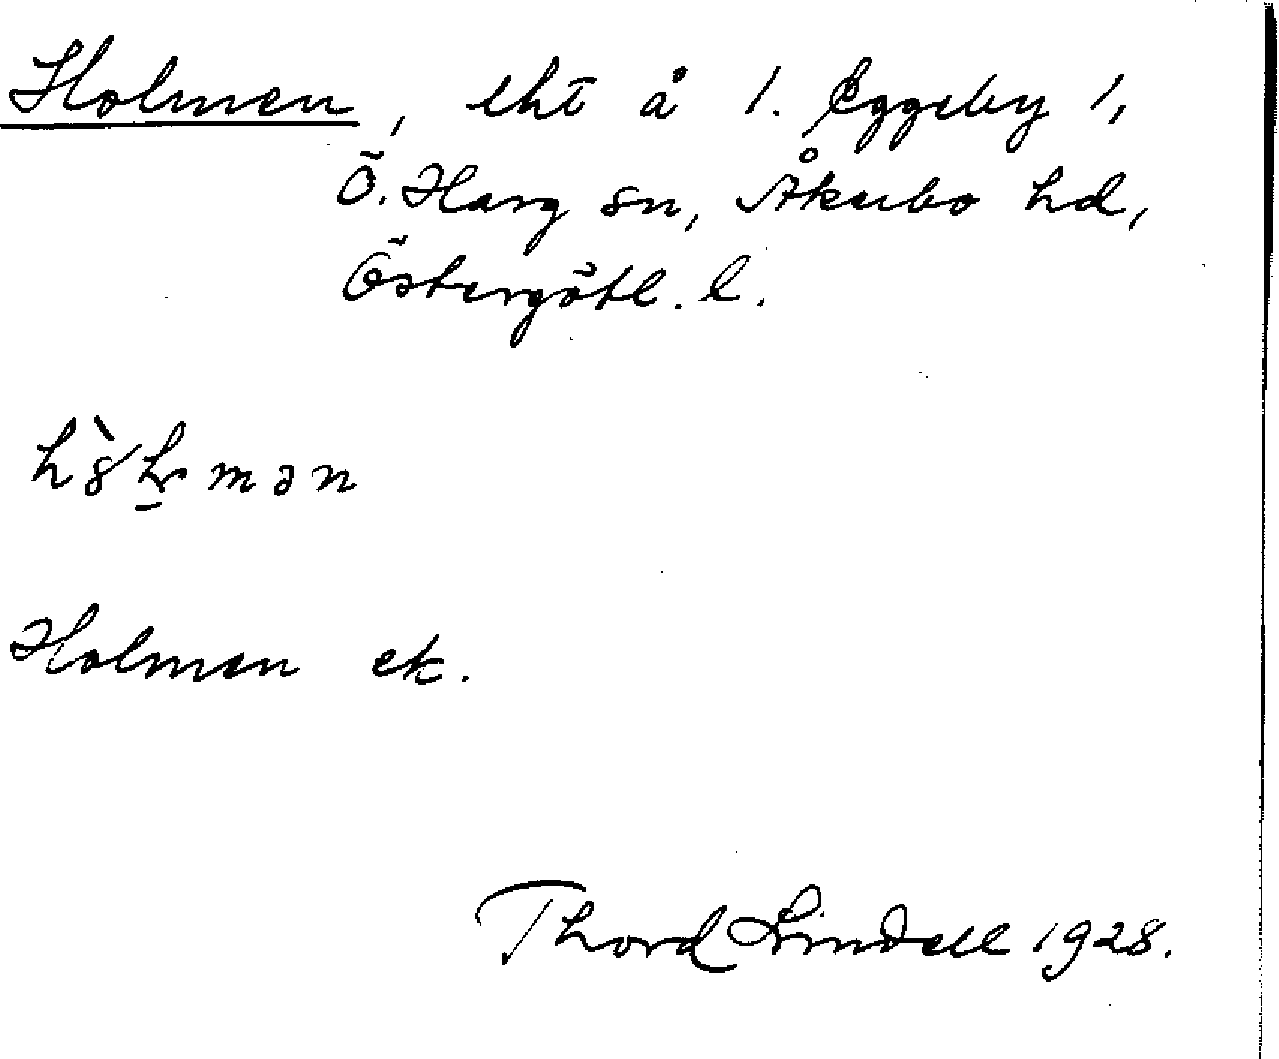 Holmen, lht å 1. Eggeby 1,
Ö. Harg sn, Åkerbo hd,
Östergötl. l.
Holmen ek.
Thord Lindell 1928.